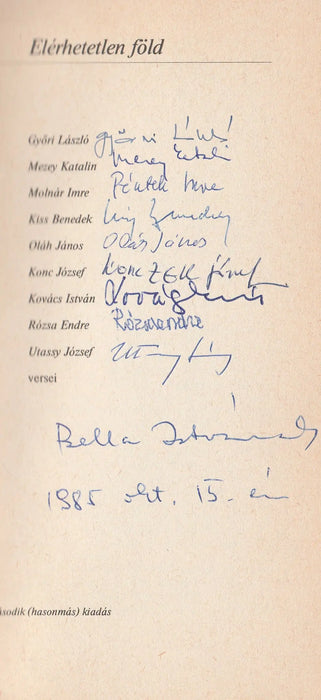 Elérhetetlen föld
Győri László Győri László
Mezey Katalin Mezey Katalin
Molnár Imre Péntek Imre
Kiss Benedek Kiss Benedek
Oláh János Oláh János
Konc József KONCZEK József
Kovács István Kovács István
Rózsa Endre Rózsa Endre
Utassy József Utassy József
versei
Bella Istvánnak
1985 okt. 15. én
ásodik (hasonmás) kiadás